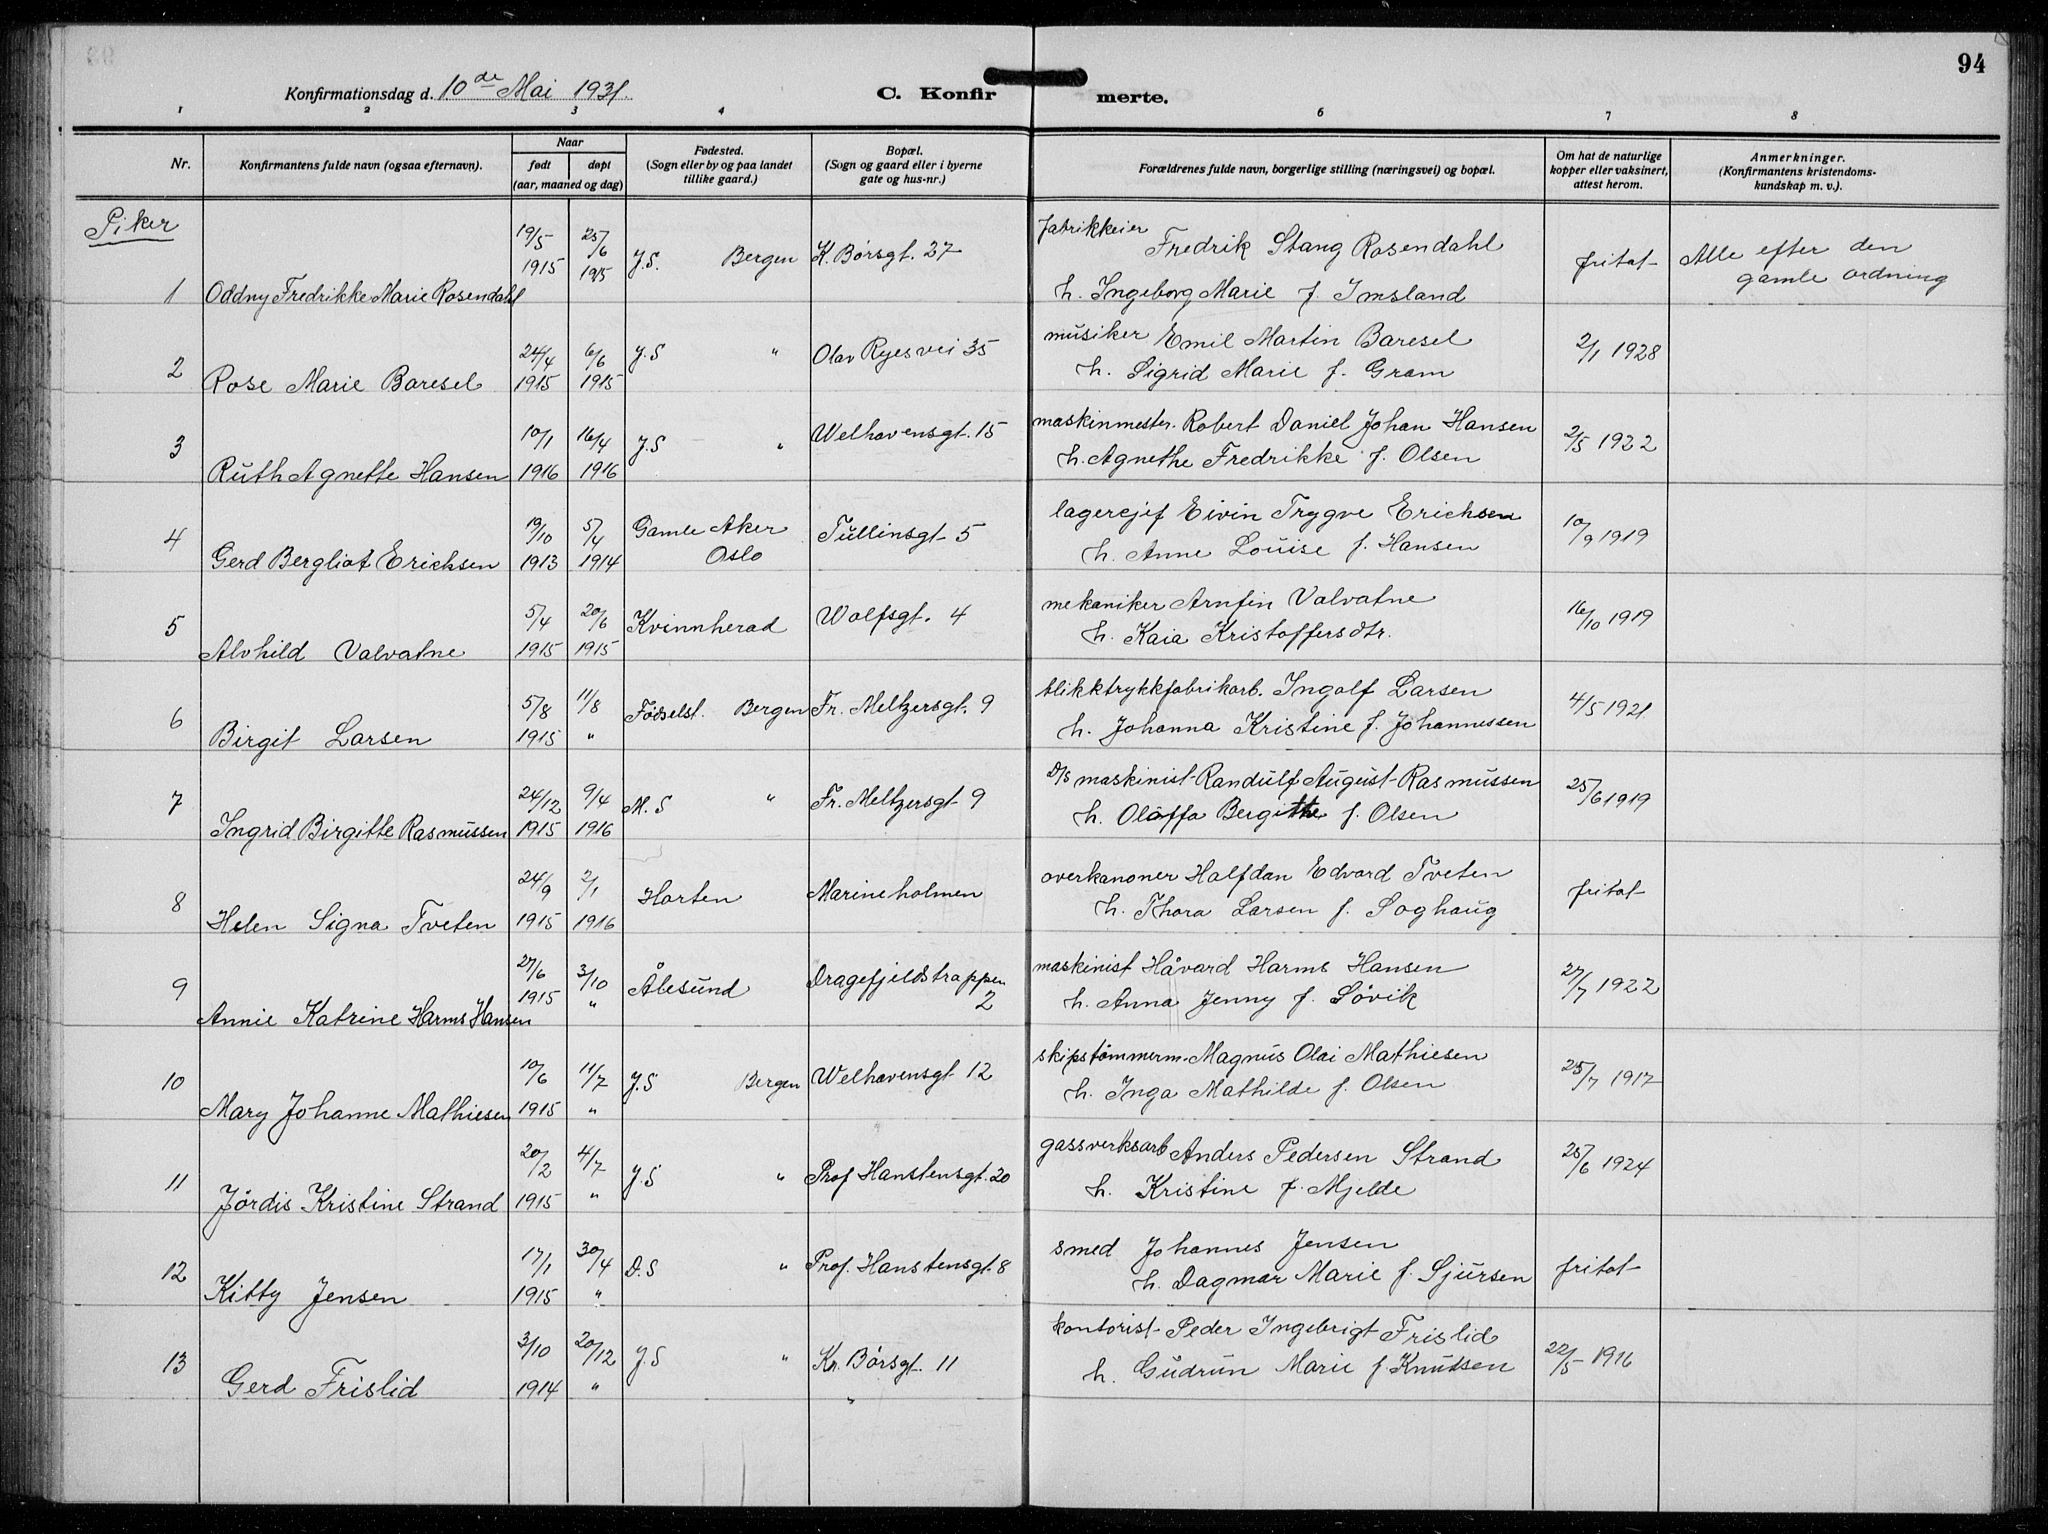 94
Konfirmationsdag d. 10de Mai 1931.
C. Konfirmerte.
1 2 3 4 6 7 8
Nr.
Konfirmantens fulde navn (ogsaa efternavn).
Naar
født
døpt
(aar, maaned og dag)
Fødested.
(Sogn eller by og paa landet
tillike gaard.)
Bopæl.
(Sogn og gaard eller i byerne
gate og hus-nr.)
Forældrenes fulde navn, borgerlige stilling (næringsvei) og bopæl.
Om hat de naturlige
kopper eller vaksinert,
attest herom.
Anmerkninger.
(Konfirmantens kristendoms-
kundskap m. v.).
Piker
1 Oddny Fredrikke Marie Rosendahl 19/5 1915 25/6 1915 J.S. Bergen K. Børsgt. 27
fabrikkeier Fredrik Stang Rosendahl
h. Ingeborg Marie f. Imsland
fritat
Alle efter den
gamle ordning
2 Rose Marie Baresel 24/4 1915 6/6 1915 J.S " Olav Ryesvei 35
musiker Emil Martin Baresel
h. Sigrid Marie f. Gram
2/1 1928
3 Ruth Agnette Hansen 10/1 1916 16/4 1916 J.S " Welhavensgt. 15
maskinmester. Robert Daniel Johan Hansen
h. Agnethe Fredrikke f. Olsen
2/5 1922
4 Gerd Bergliot Erichsen 19/10 1913 5/4 1914 Gamle Aker Oslo Tullinsgt 5
lagercjef Eivin Trygve Erichsen
h. Anne Louise f. Hansen
10/9 1919
5 Alvhild Valvatne 5/4 1915 20/6 1915 Kvinnherad Wolfsgt. 4
mekaniker Arnfin Valvatne
h. Kaia Kristoffersdtr.
16/10 1919
6 Birgit Larsen 5/8 1915 11/8 " Fødselst. Bergen Fr. Meltzersgt. 9
blikktrykkfabrikarb. Ingolf Larsen
h. Johanna Kristine f. Johannessen
4/5 1921
7 Ingrid Birgitte Rasmussen 24/12 1915 9/4 1916 M.S " Fr. Meltzersgt 9
D/S maskinist Randulf August Rasmussen
h. Olaffa Bergitte f. Olsen
25/6 1919
8 Helen Signa Tveten 24/9 1915 2/1 1916 Horten Marineholmen
overkanoner Halfdan Edvard Tveten
h. Thora Larsen f. Soghaug
fritat
9 Annie Katrine Harms Hansen 27/6 1915 3/10 " Ålesund Dragefjeldstrappen 2
maskinist Håvard Harms Hansen
h. Anna Jenny f. Søvik
27/7 1922
10 Mary Johanne Mathiesen 10/6 1915 11/7 " J.S Bergen Welhavensgt 12
skipstømmerm. Magnus Olai Mathiesen
h. Inga Mathilde f. Olsen
25/7 1917
11 Jørdis Kristine Strand 20/2 1915 4/7 " J.S " Prof Hanstensgt. 20
gassverksarb Anders Pedersen Strand
h. Kristine f. Mjelde
25/6 1924
12 Kitty Jensen 17/1 1915 30/4 " D.S " Prof. Hanstensgt. 8
smed Johannes Jensen
h. Dagmar Marie f. Sjursen
fritat
13 Gerd Frislid 3/10 1914 20/12 " J.S " Kr. Børsgt. 11 "
kontorist Peder Ingebrigt Frislid
h. Gudrun Marie f. Knutsen
22/5 1916